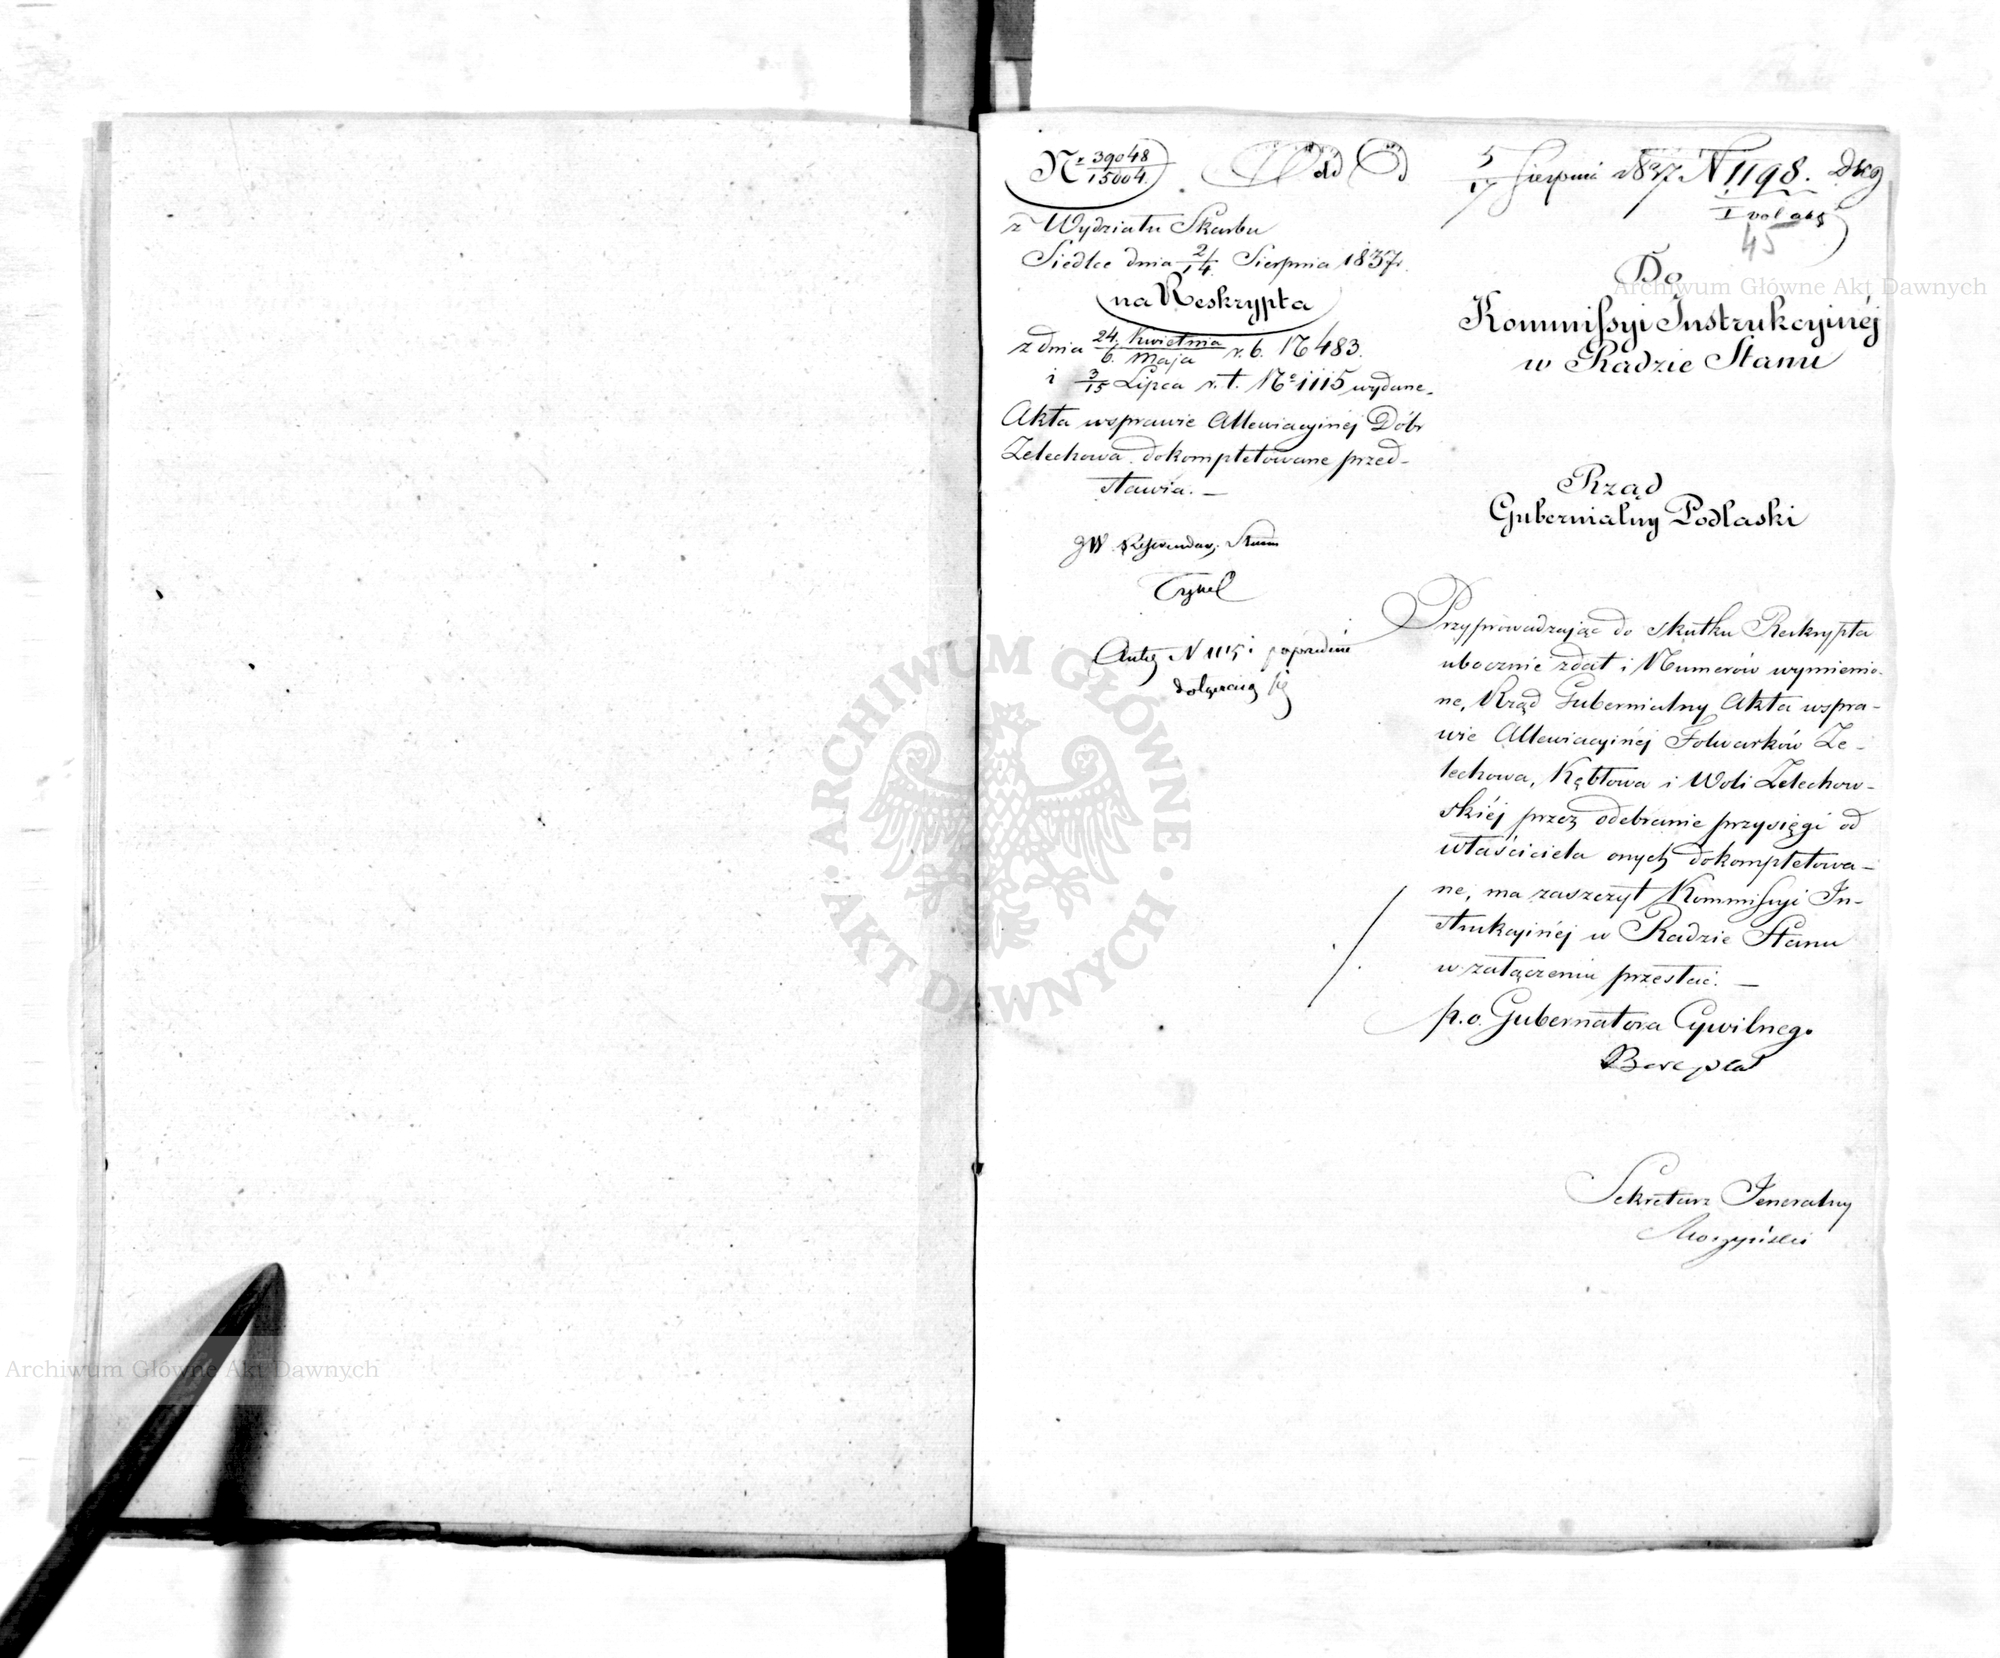 Nr 39048/15004.
z Wydziału Skarbu
Siedlce dnia 2/14 Sierpnia 1837 r.
na Reskrypta
z dnia 24. Kwietnia/6. Maja r. b. No 483.
i 3/15 Lipca r. t. No 1115 wydane.
Akta wsprawie Allewiacyjnéj Dóbr
Zelechowa dokompletowane przed-
stawia. —
JW Referendarz Stanu
Antec N 1115 i poprzednie
5/17 Sierpnia 1837 N 1198.
I vol akt
45
Do
Kommissyi Instrukcyjnéj
w Radzie Stanu
Rząd
Gubernialny Podlaski
Przyprowadzając do skutku Reskrypta
ubocznie z dat i Numerów wymienio-
ne, Rząd Gubernialny Akta wspra-
wie Allewiacyjnéj Folwarków Ze-
lechowa, Kębłowa i Woli Zelechow-
skiéj przez odebranie przysięgi od
właściciela onych dokompletowa-
ne, ma zaszczyt Kommissyi In-
strukcyjnéj w Radzie Stanu
w załączeniu przesłać. —
p. o. Gubernatora Cywilnego
Sekretarz Jeneralny
Archiwum Główne Akt Dawnych
Archiwum Główne Akt Dawnych
ARCHIWUM GŁÓWNE AKT DAWNYCH